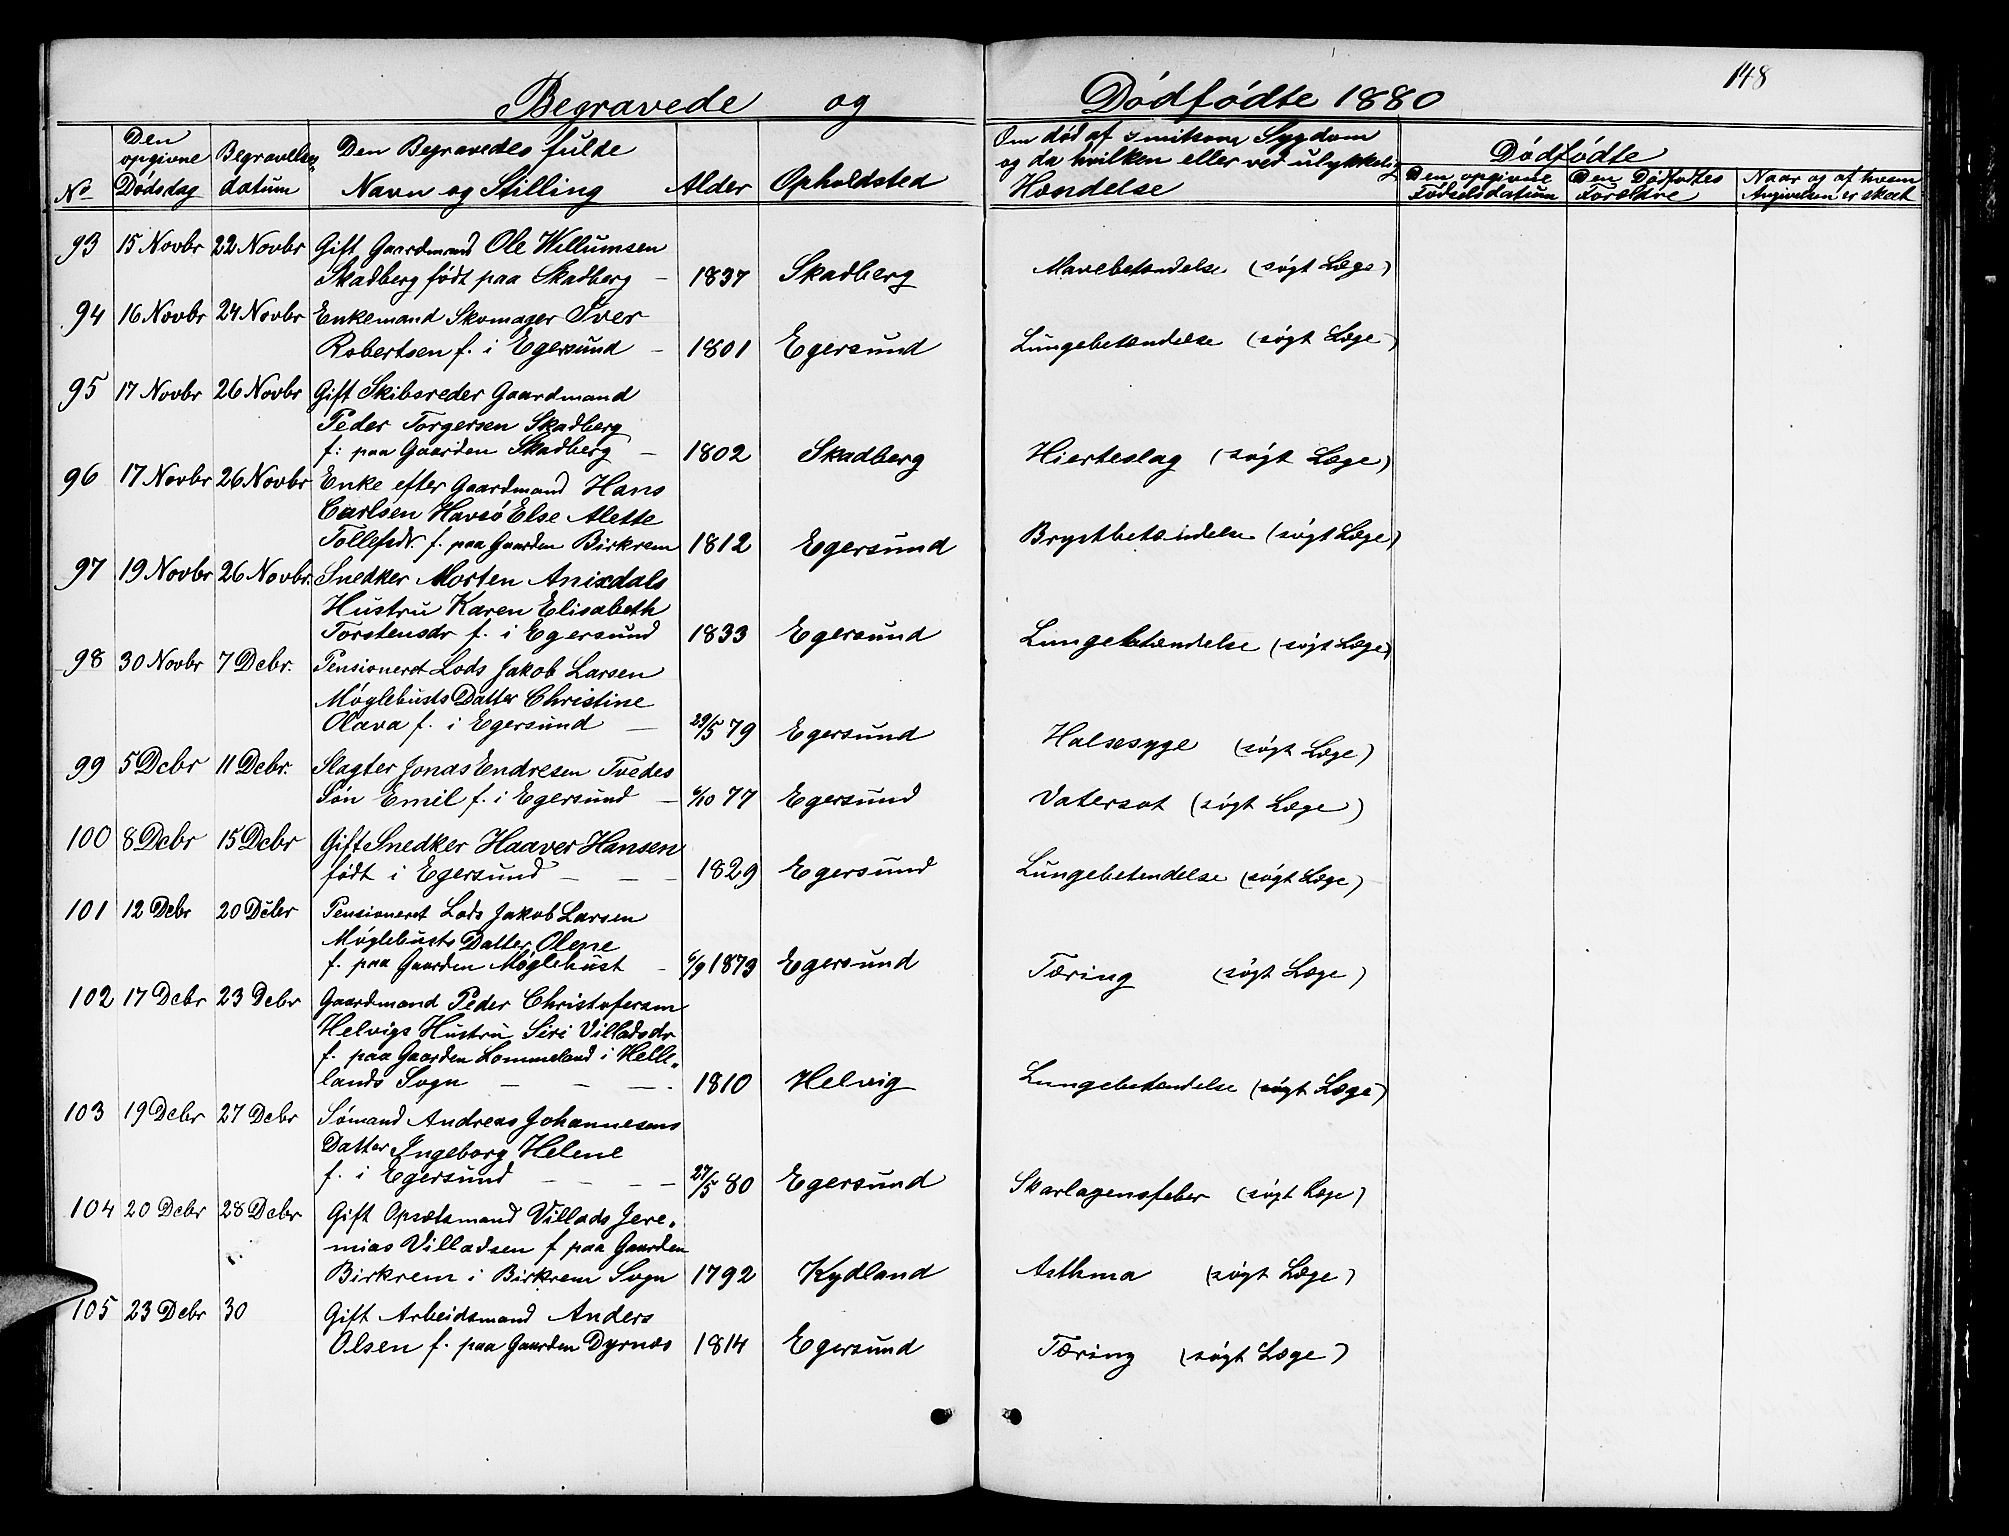 148
Begravede og Dödfödte 1880
No
Den opgivne Dödsdag
Begravelsesdatum
Den Begravedes fulde Navn og Stilling
Alder
Opholdsted
Om död af smitsom Sygdom
og da hvilken eller ved ulykkelig
Hændelse
Dödfödte
Den opgivne Födselsdatum
Den Dödfödtes Forældre
Naar og af hvem Angivelsen er skeet
93 15 Novbr 22 Novbr Gift Gaardmand Ole Willumsen
Skadberg födt paa Skadberg – 1837 Skadberg Mavebetændelse (søgt Læge)
94 16 Novbr 24 Novbr Enkemand Skomager Iver
Robertsen f. i Egersund – 1801 Egersund Lungebetændelse (søgt Læge)
95 17 Novbr 26 Novbr Gift Skibsreder Gaardmand
Peder Torgersen Skadberg
f: paa Gaarden Skadberg – 1802 Skadberg Hierteslag (søgt Læge)
96 17 Novbr 26 Novbr Enke efter Gaardmand Hans
Carlsen Havsö Else Alette
Tollefsdr. f. paa Gaarden Birkrem 1812 Egersund Brystbetændelse (søgt Læge)
97 19 Novbr 26 Novbr. Snedker Morten Anixdals
Hustru Karen Elisabeth
Torstensdr f. i Egersund 1833 Egersund Lungebetændelse (søgt Læge)
98 30 Novbr 7 Debr. Pensioneret Lods Jakob Larsen
Møglehusts Datter Christine
Olava f. i Egersund – 29/5 79 Egersund Halsesyge (søgt Læge)
99 5 Debr 11 Debr. Slagter Jonas Endresen Tvedes
Søn Emil f. i Egersund – 6/10 77 Egersund Vatersot (søgt Læge)
100 8 Debr 15 Debr Gift Snedker Haaver Hansen
født i Egersund – – – 1829 Egersund Lungebetændelse (søgt Læge)
101 12 Debr 20 Debr Pensioneret Lods Jakob Larsen
Møglehusts Datter Olene
f. paa Gaarden Møglehust – 6/9 1879 Egersund Tæring (søgt Læge)
102 17 Debr 23 Debr Gaardmand Peder Christofersen
Helvigs Hustru Siri Villadsdr
f. paa Gaarden Lommeland i Helle„
lands Sogn – – – 1810 Helvig Lungebetændelse (søgt Læge)
103 19 Debr 27 Debr Sømand Andreas Johannesens
Datter Ingeborg Helene
f. i Egersund – – – 27/5 80 Egersund Skarlagensfeber (søgt Læge)
104 20 Debr 28 Debr Gift Opsætsmand Villads Jere„
mias Villadsen f paa Gaarden
Birkrem i Birkrem Sogn 1792 Kydland Asthma (søgt Læge)
105 23 Debr 30 Gift Arbeidsmand Anders
Olsen f. paa Gaarden Dyrnæs 1814 Egersund Tæring (søgt Læge)